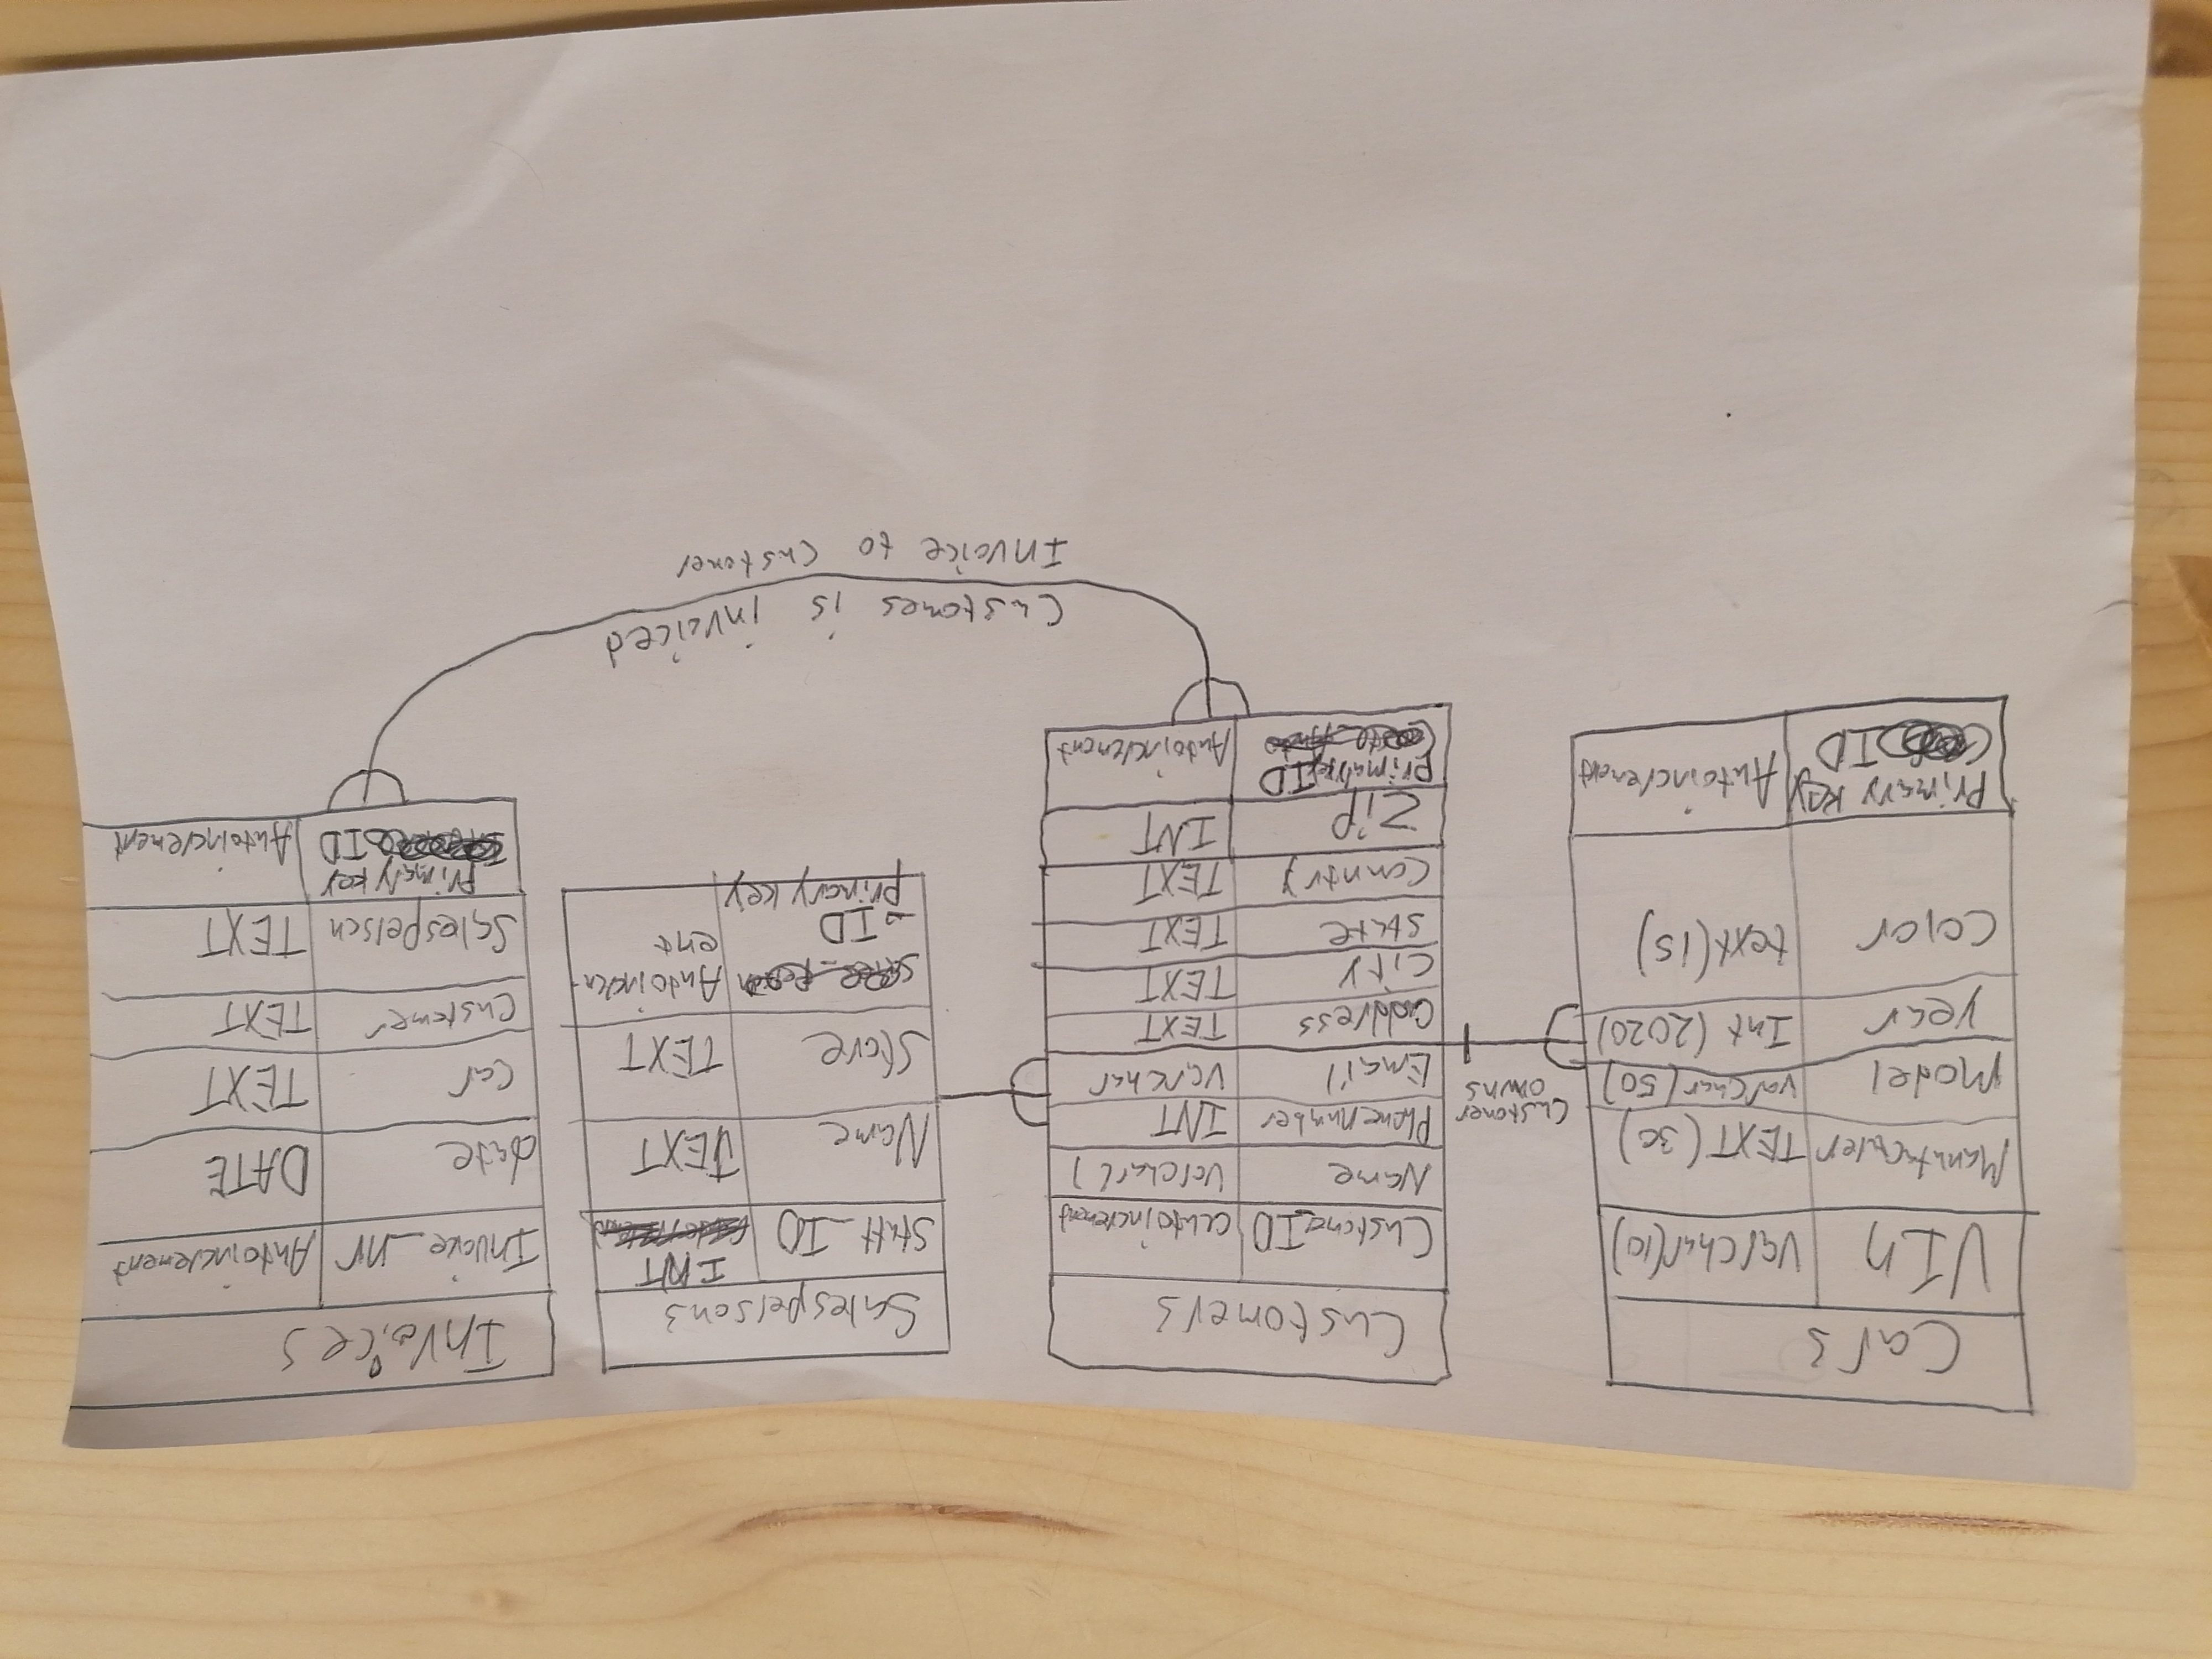 Cars
VIN Varchar(10)
Manufacturer TEXT(30)
Model varchar(50)
year Int(2020)
Color text(15)
Primary key Autoincrement
ID
Customer
owns
Customers
CustomerID autoincrement
Name Varchar()
Phonenumber INT
Email Varchar
address TEXT
city TEXT
state TEXT
Country TEXT
Zip INT
Primary key ID Autoincrement
Salespersons
Staff_ID INT
Name TEXT
Store TEXT
Autoincrem-
ent
_ID
primary key
Invoices
Invoice_nr Autoincrement
date DATE
Car TEXT
Customer TEXT
Salesperson TEXT
primary key
ID Autoincrement
Customer is invoiced
Invoice to customer